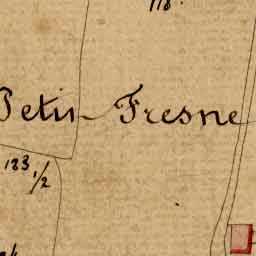 118.
Petit Fresne
133 1/2